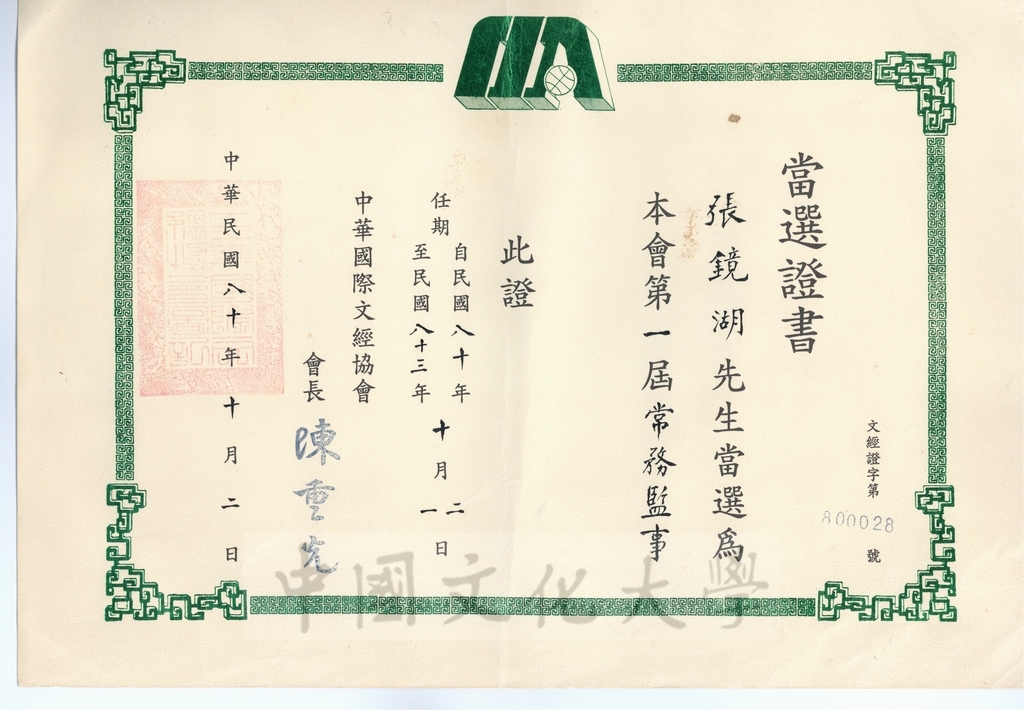 文經證字第 800028 號
當選證書
張鏡湖先生當選為
本會第一屆常務監事
此證
任期自民國八十年十月二日
至民國八十三年十月一日
中華國際文經協會
會長 陳重光
中華民國八十年十月二日
中國文化大學